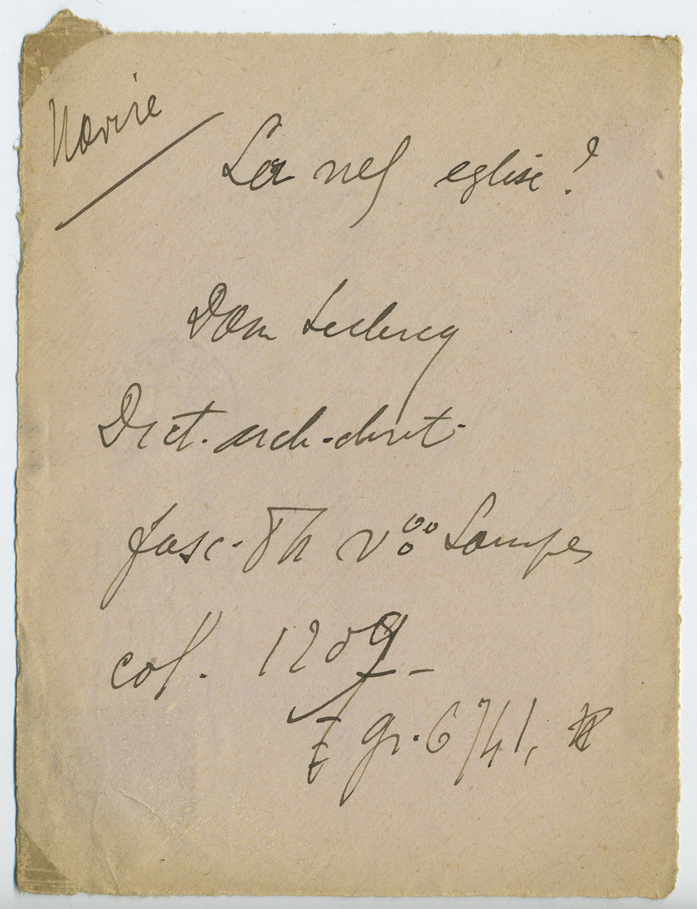 Navire
La nef église?
Dom Leclercq
Dict. arch. chret.
fasc. v° Lampes
col. 1209
fig. 6741,